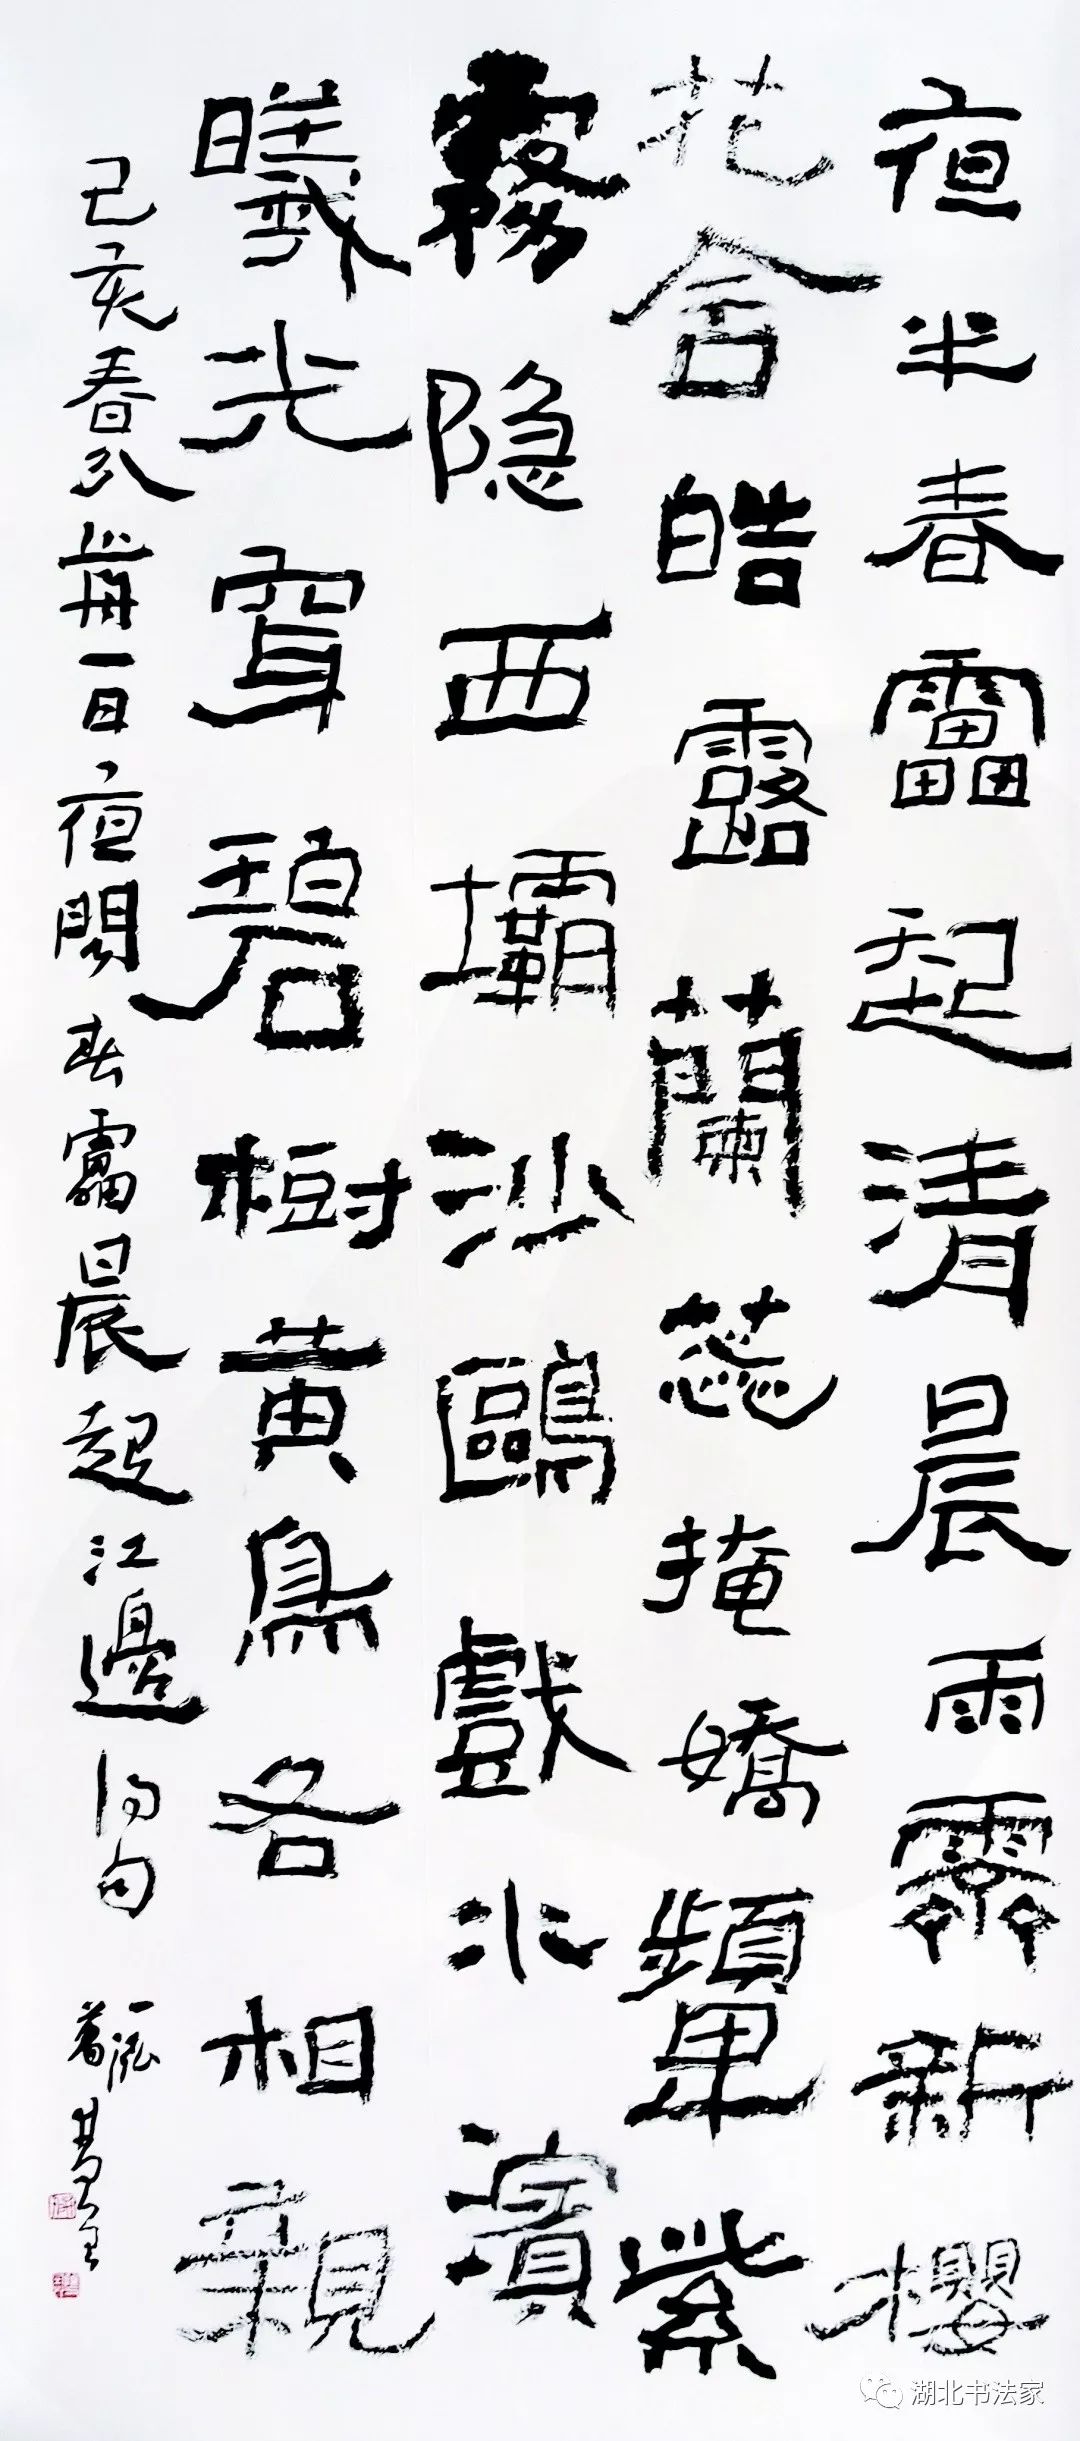 夜半春靁起清晨雨霽新櫻
花含皓露蘭蕊掩嬌顰紫
霧隐西壩沙鷗戲水濱
曦光穿碧樹黃鳥各相親
己亥春分前一日夜聞春靁晨起江邊得句 一泓
湖北书法家